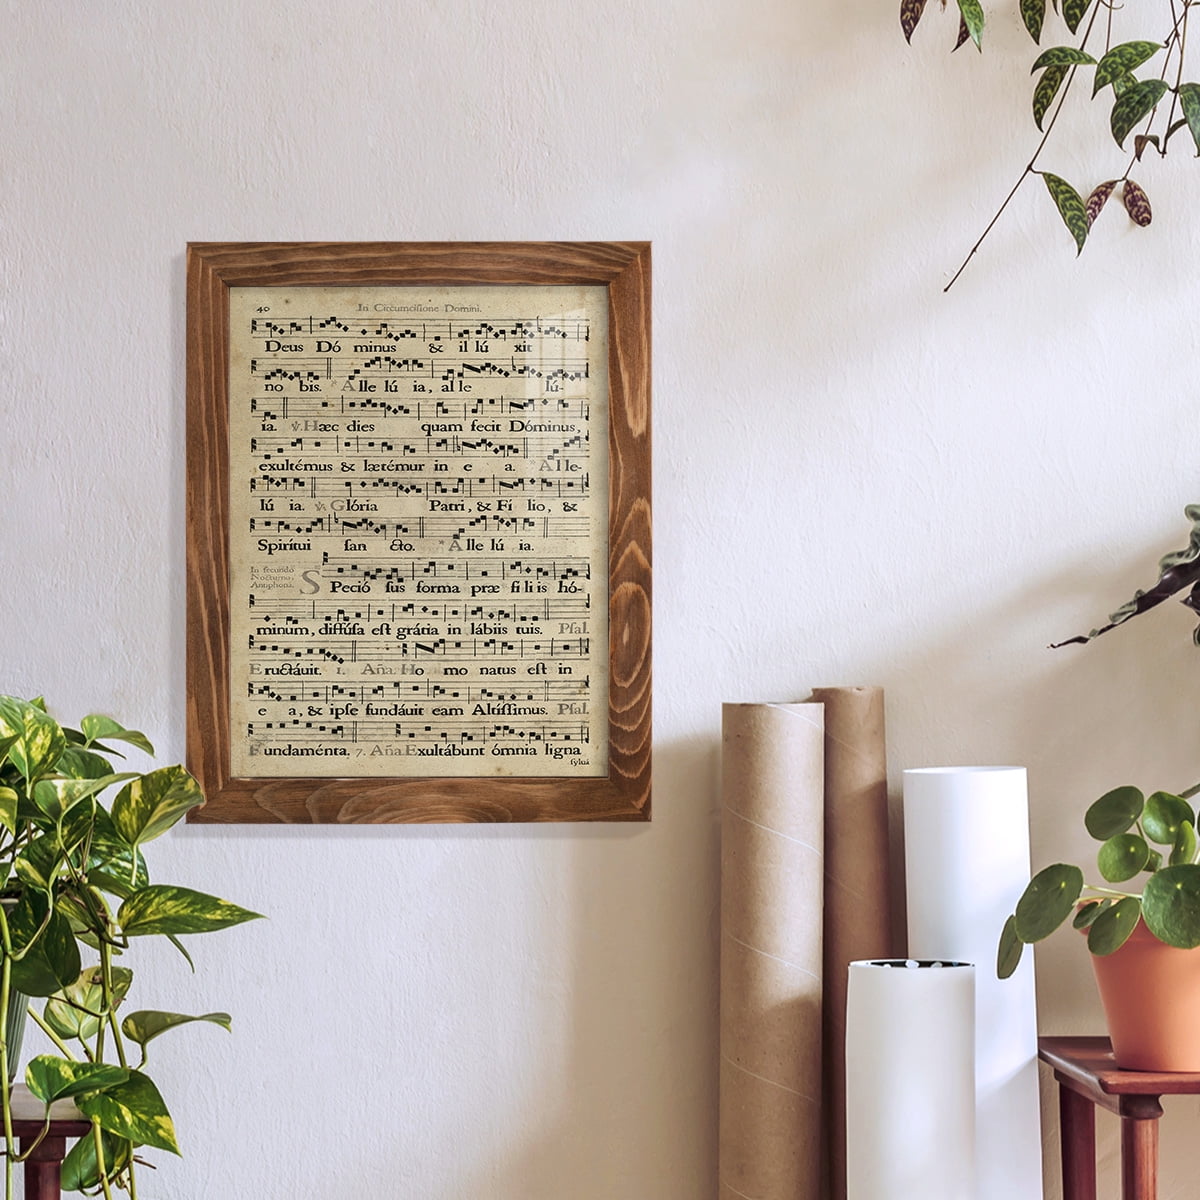 40 In Circumcisione Domini.
Deus Dó minus & il lú xit
no bis. * Alle lú ia, al le lú-
ia. ℣. Hæc dies quam fecit Dóminus,
exultémus & lætémur in e a. * Alle-
lú ia. ℣. Glória Patri, & Fí lio, &
Spirítui ſan cto. * Alle lú ia.
In ſecundo
Nocturno,
Antiphona.
SPeció ſus forma præ fi li is hó-
minum, diffúſa eſt grátia in lábiis tuis. Pſal.
Eructáuit. 1. Aña. Ho mo natus eſt in
e a, & ipſe fundáuit eam Altíſſimus. Pſal.
Fundaménta. 7. Aña. Exultábunt ómnia ligna
ſylua